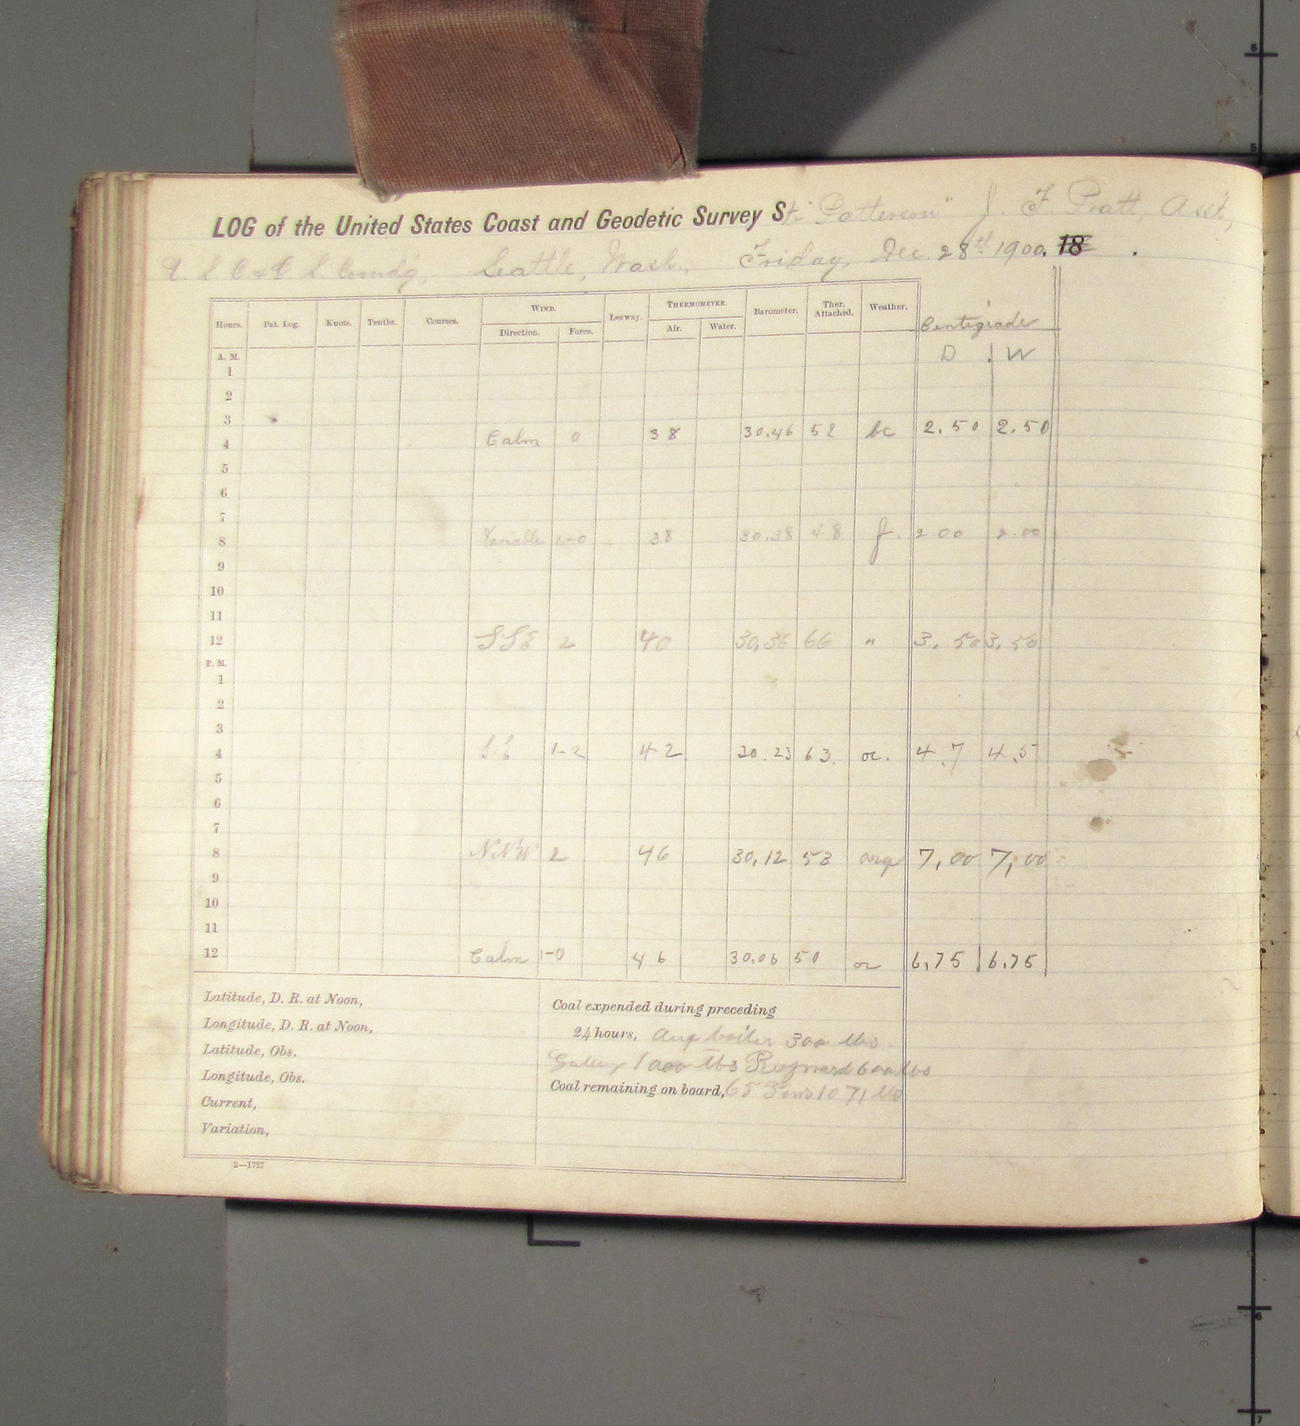 LOG of the United States Coast and Geodetic Survey Str "Patterson" J. F. Pratt, Asst,
U. S. C. & G. S. Comdg, Seattle, Wash., Friday, Dec. 28th 1900. 18 .
Hours. Pat. Log. Knots. Tenths. Courses. WIND. Leeway. THERMOMETER. Barometer. Ther. Attached. Weather. Centigrade
Direction. Force. Air. Water. D. W
A. M.
1
2
3
4 Calm 0 38 30.46 52 bc 2.50 2.50
5
6
7
8 Variable 1-0 38 30.38 48 f. 2.00 2.00
9
10
11
12 SSE 2 40 30,36 66 " 3.50 3.50
P. M.
1
2
3
4 SE 1-2 42 30.23 63. oc. 4.7 4.5
5
6
7
8 N.N.W 2 46 30,12 53 orq 7,00 7,00
9
10
11
12 Calm 1-0 46 30.06 50 or 6,75 6,75
Latitude, D. R. at Noon,
Longitude, D. R. at Noon,
Latitude, Obs.
Longitude, Obs.
Current,
Variation,
Coal expended during preceding
24 hours, Aux boiler 300 lbs
Galley 1000 lbs 600 lbs
Coal remaining on board, 65 Tons 1071 lbs
2—1727
6
5
6
7